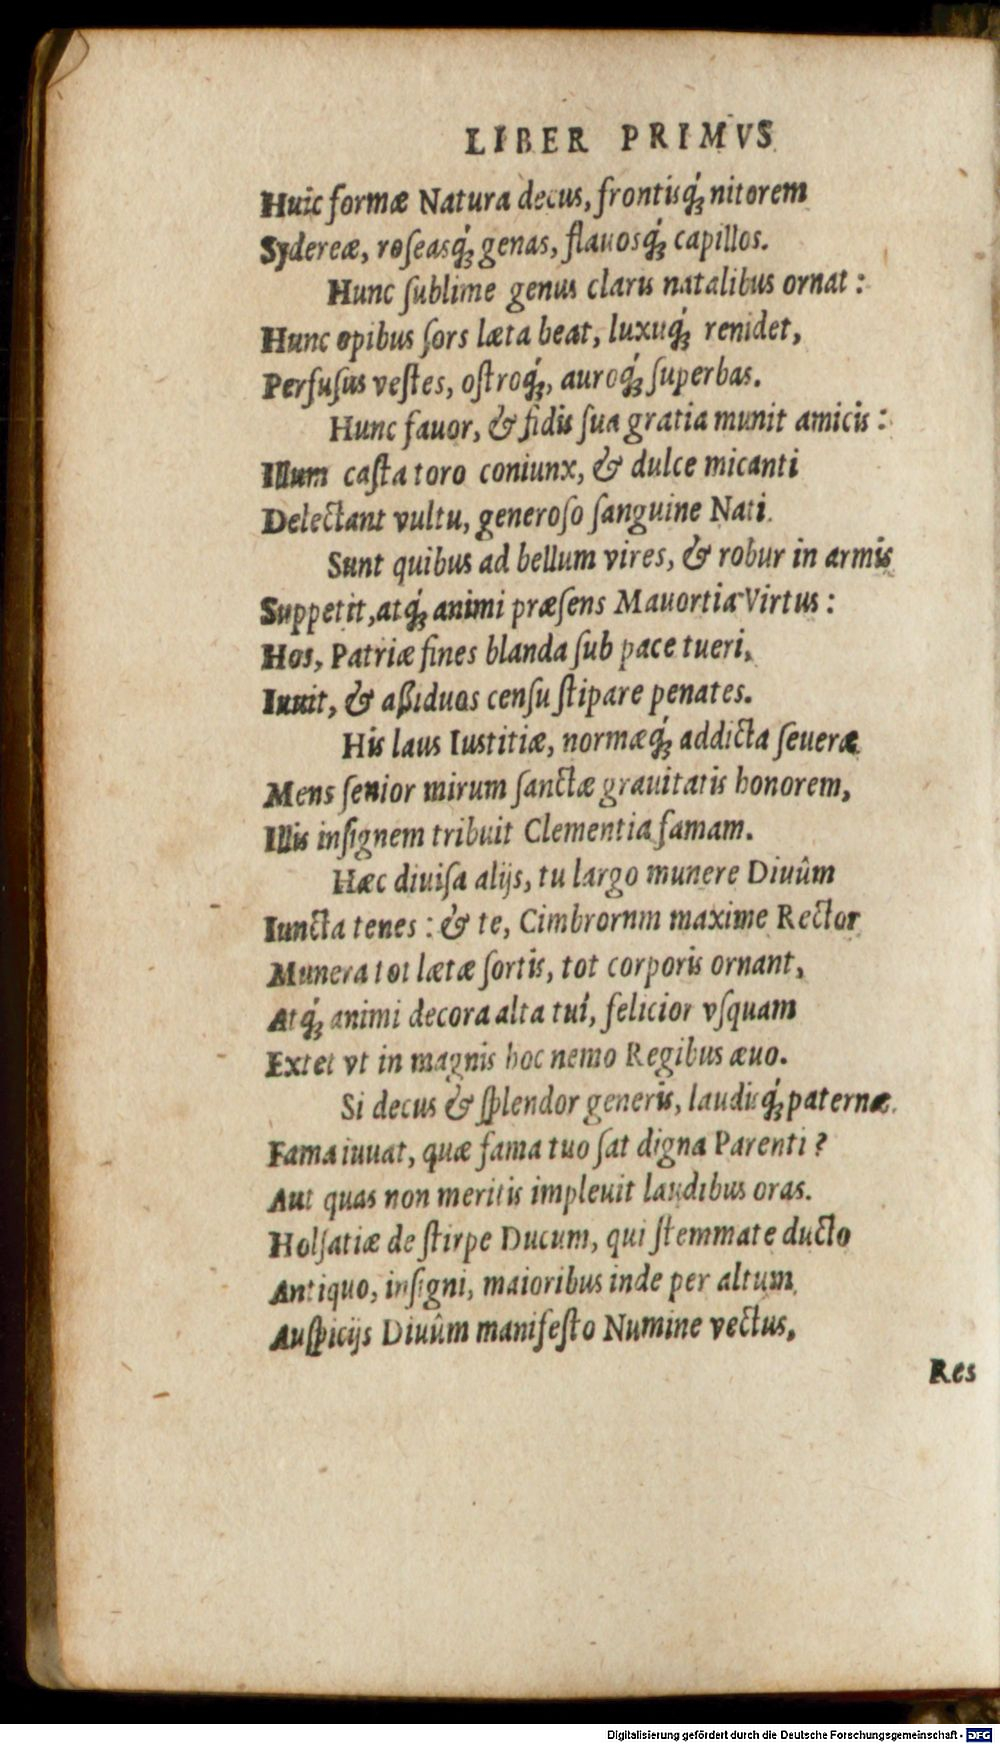 LIBER PRIMVS
Huic formæ Natura decus, frontisq́; nitorem
Sydereæ, roſeasq́; genas, flauosq́; capillos.
Hunc ſublime genus claris natalibus ornat :
Hunc opibus ſors læta beat, luxuq́; renidet,
Perfuſus veſtes, oſtroq́;, auroq́; ſuperbas.
Hunc fauor, & fidis ſua gratia munit amicis :
Illum caſta toro coniunx, & dulce micanti
Delectant vultu, generoſo ſanguine Nati.
Sunt quibus ad bellum vires, & robur in armis
Suppetit, atq́; animi præſens Mauortia Virtus :
Hos, Patriæ fines blanda ſub pace tueri,
Iuuit, & aßiduos cenſu ſtipare penates.
His laus Iustitiæ, normæq́; addicta ſeueræ
Mens ſenior mirum ſanctæ grauitatis honorem,
Illis inſignem tribuit Clementia famam.
Hæc diuiſa alijs, tu largo munere Diuûm
Iuncta tenes : & te, Cimbrornm maxime Rector
Munera tot lætæ ſortis, tot corporis ornant,
Atq́; animi decora alta tui, felicior vſquam
Extet vt in magnis hoc nemo Regibus æuo.
Si decus & ſplendor generis, laudisq́; paternæ
Fama iuuat, quæ fama tuo ſat digna Parenti ?
Aut quas non meritis impleuit laudibus oras.
Holſatiæ de ſtirpe Ducum, qui ſtemmate ducto
Antiquo, inſigni, maioribus inde per altum
Auſpicijs Diuûm manifeſto Numine vectus,
Res
Digitalisierung gefördert durch die Deutsche Forschungsgemeinschaft - DFG